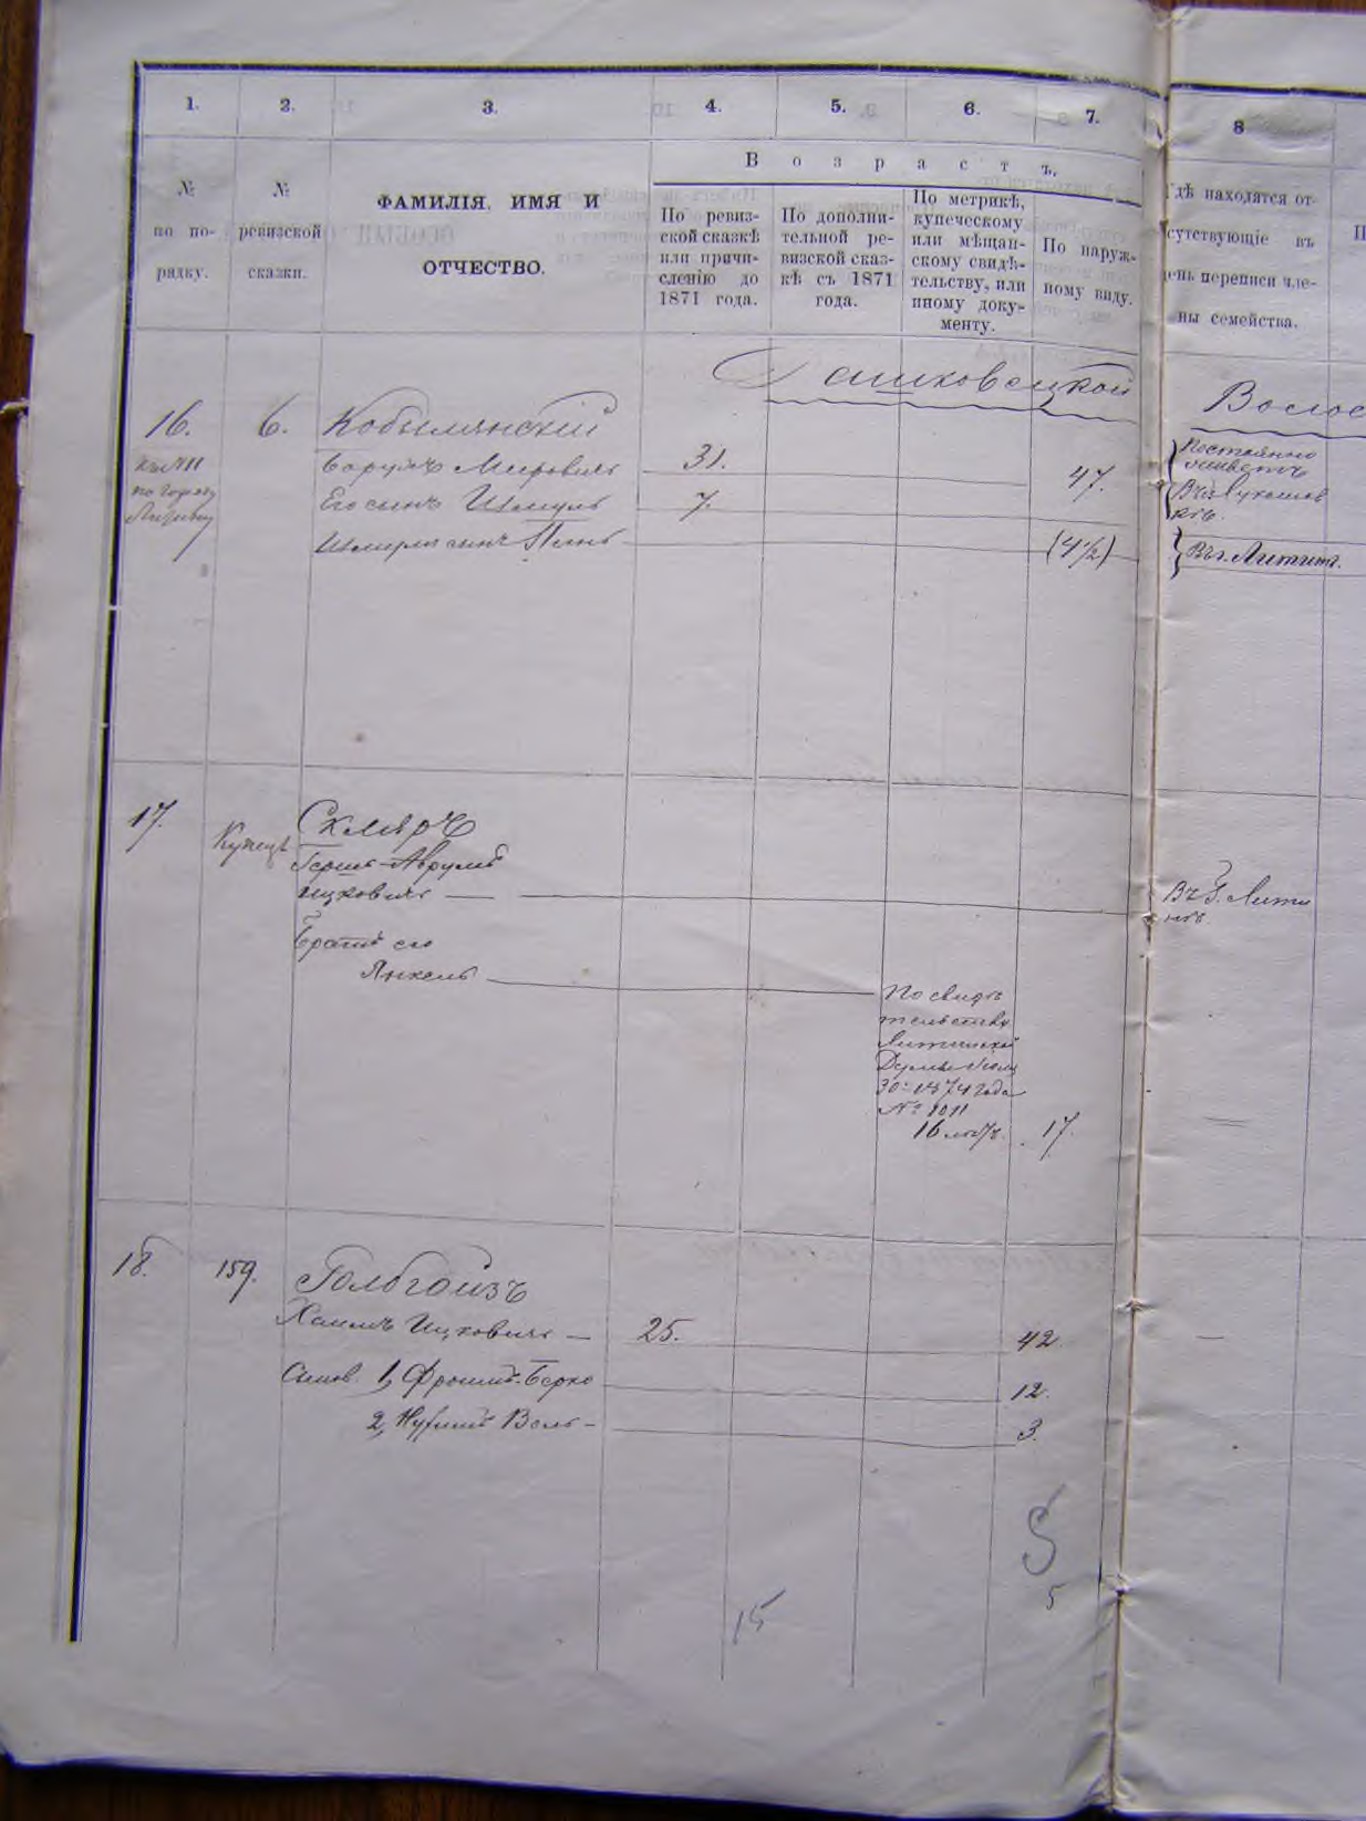 1. 2. 3. 4. 5. 6. 7. 8
№ по по-
рядку.
№
ревизской
сказки.
ФАМИЛІЯ, ИМЯ И
ОТЧЕСТВО.
Возрастъ.
По ревиз-
ской сказкѣ
или причи-
сленію до
1871 года.
По дополни-
тельной ре-
визской сказ-
кѣ съ 1871
года.
По метрикѣ,
купеческому
или мѣщан-
скому свидѣ-
тельству, или
иному доку-
менту.
По наруж-
ному виду.
Гдѣ находятся от-
сутствующіе въ
день переписи чле-
ны семейства.
Дашковецкой Волос
16. 6. Кобылянскій
по городу
Литину
Борухъ Меировичъ 31. 47.
Его сынъ Шмуль 7.
Шмуля сынъ Пинь (4½)
Постоянно
живетъ
Въ г. Литинѣ.
17. Купецъ Скляръ
Гершъ-Аврумъ
Ицковичъ
Въ г. Лити
нѣ.
Братъ его
Янкель
По свидѣ
тельству
Литинской
Думы
30 1874 года
№ 1011
16 лѣтъ. 17.
18. 159. Гольдгоизъ
Хаимъ Ицковичъ 25. 42.
Сынов. 1, Фроимъ-Берко 12.
2, Нухимъ Воль 3.
5
5
15